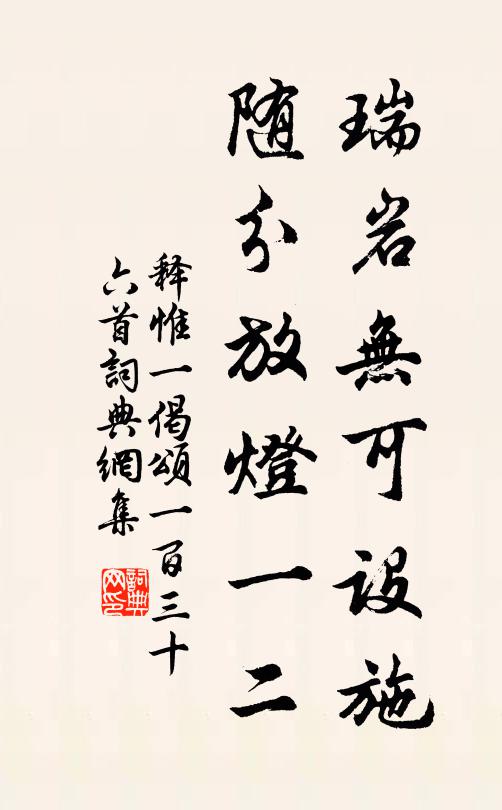 瑞岩無可設施
随分放燈一二
释惟一偈頌一百三十
六首詞典網集
詞典网印